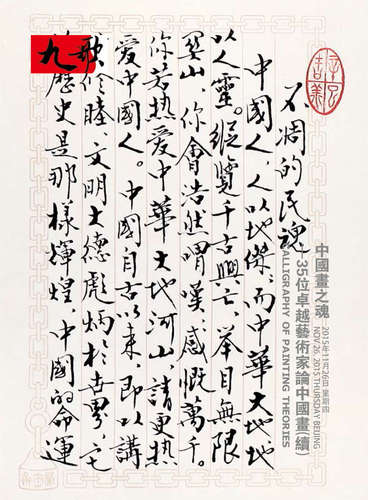 不凋的民魂
中國人,人以地傑,而中華大地,地
以人靈。縱覽千古興亡,举目無限
关山,你會浩然喟嘆,感慨萬千。
你若热爱中華大地河山,請更热
愛中國人。中國自古以来,即以講
修睦、文明大德彪炳於世界,它
歷史是那樣輝煌,中國的命運
九
中國畫之魂
2015年11月26日 星期四
NOV 26. 2015.THURSDAY BEIJING
35位卓越藝術家論中國畫(續)
ALLIGRAPHY OF PAINTING THEORIES